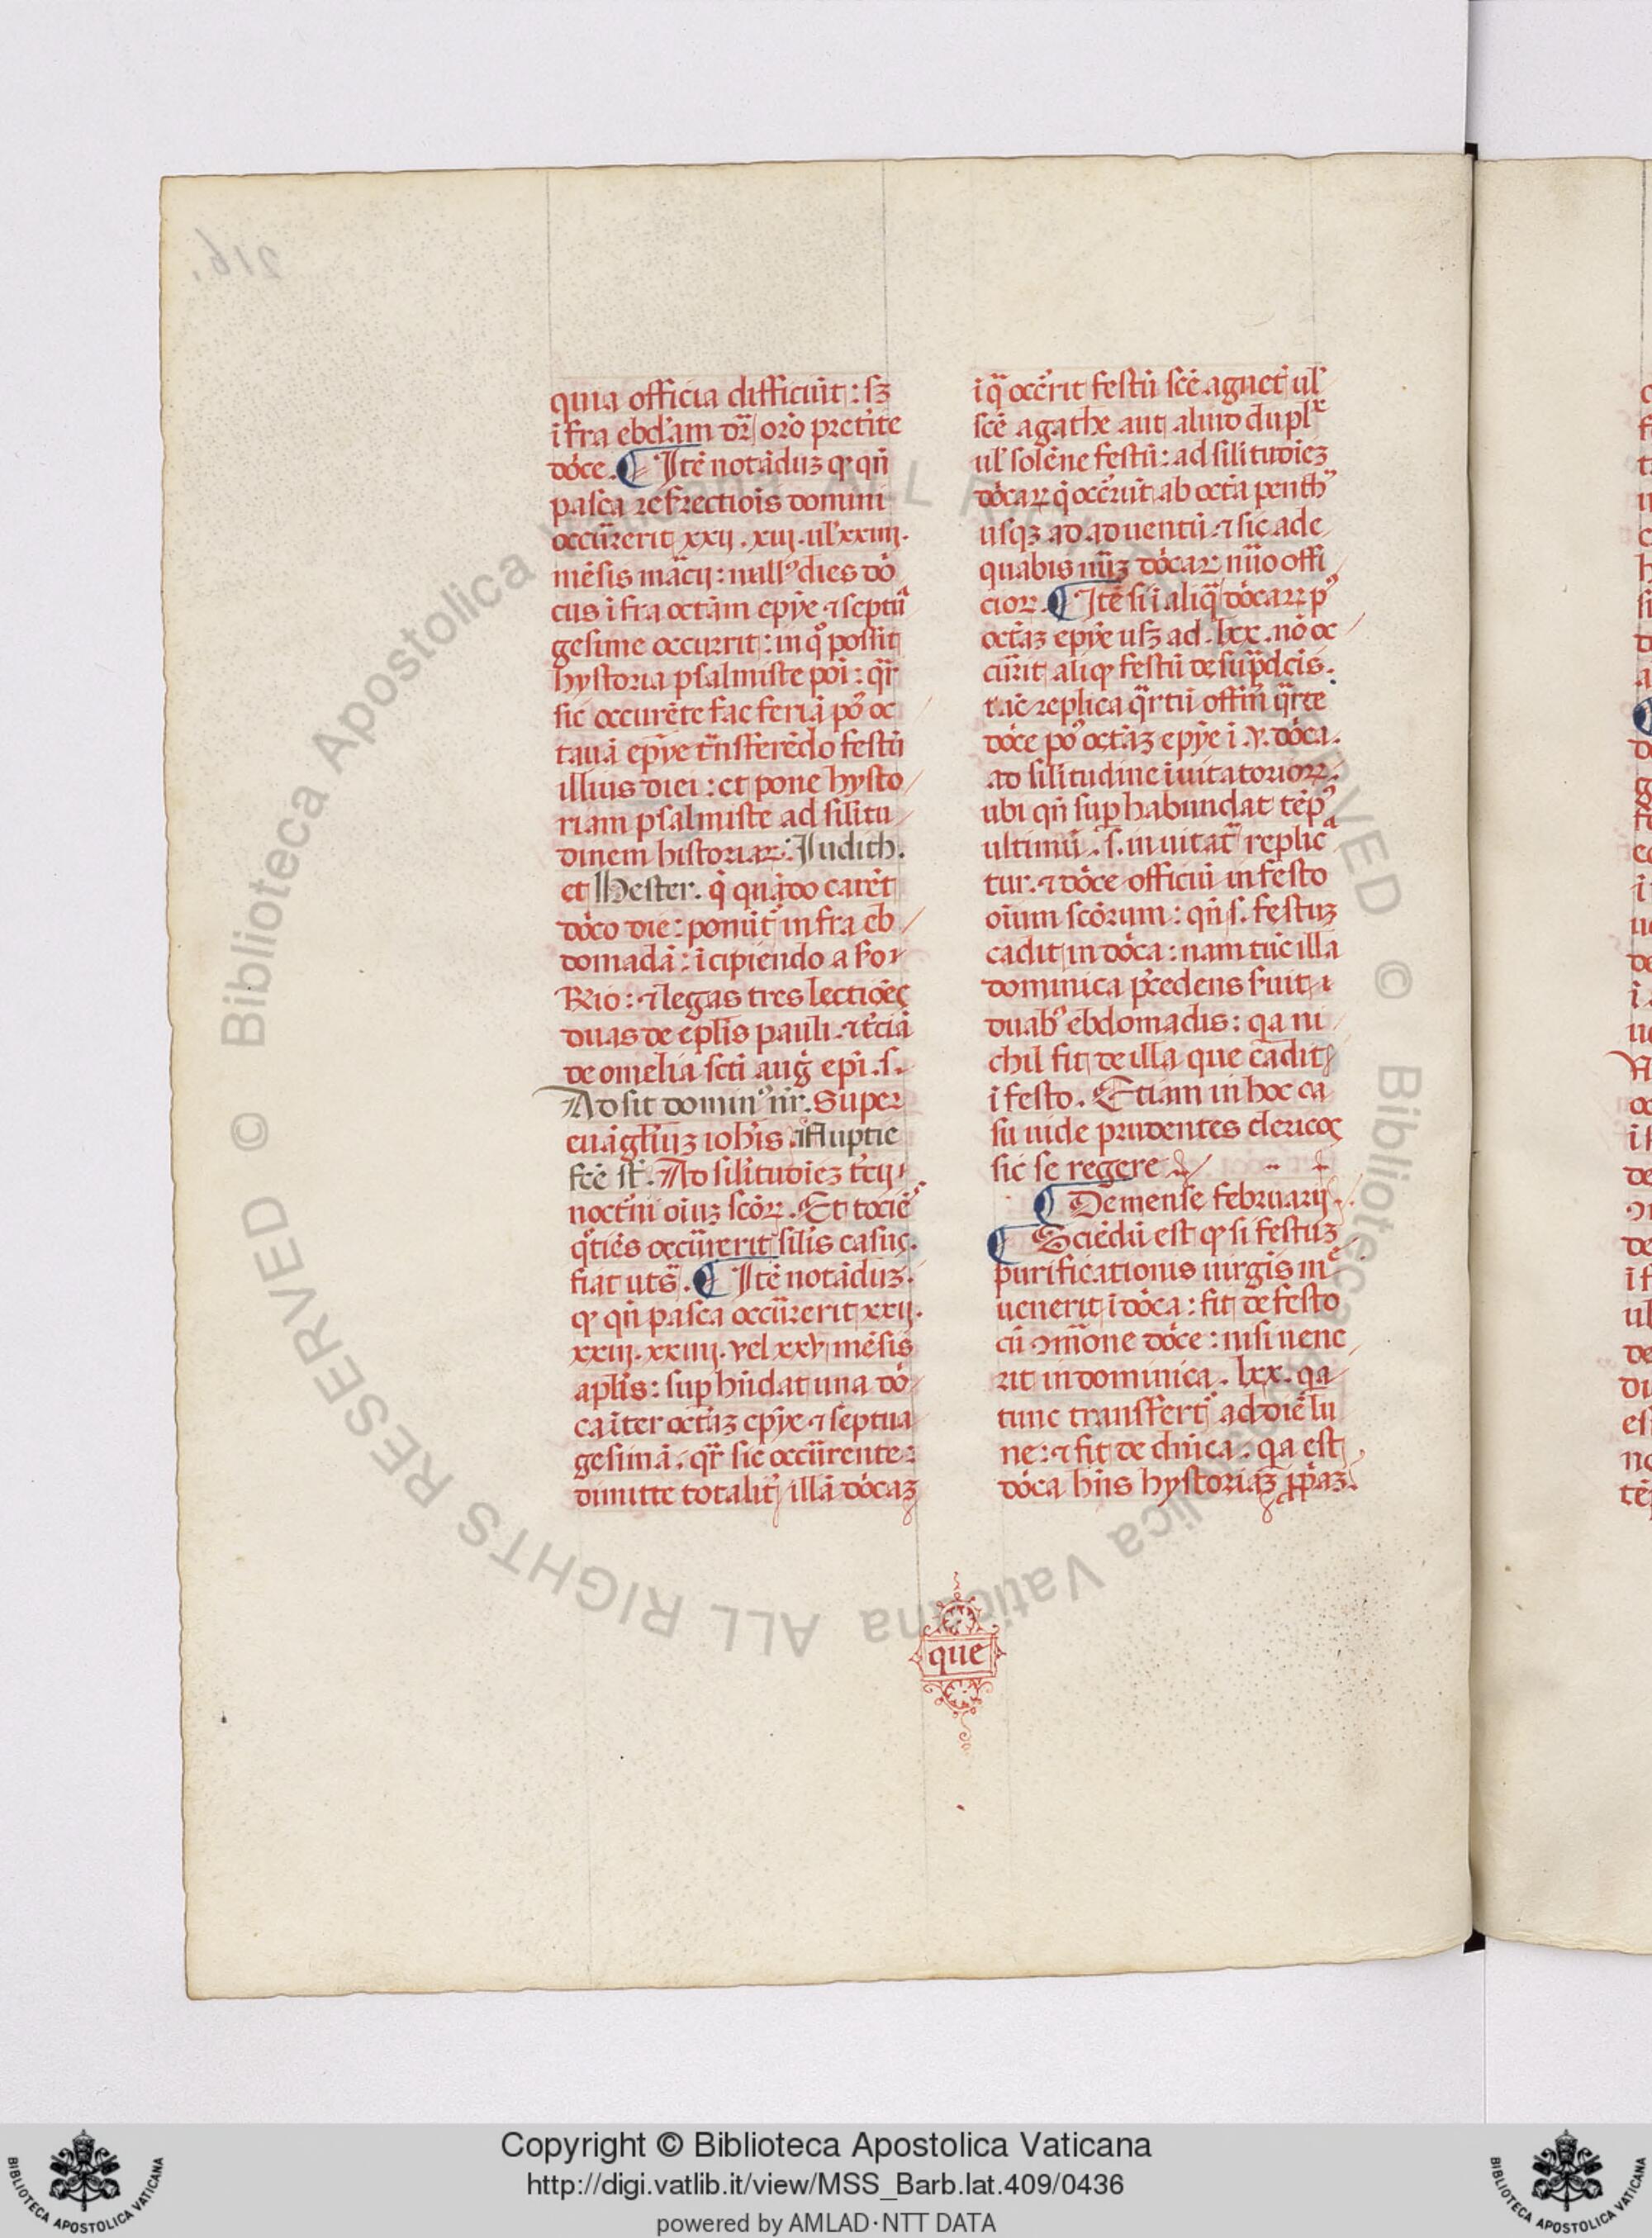 quia officia difficiūt : sȝ
ifra ebd'am dr̄ oro p̄cētite
doce. ¶ Itē notāduȝ qꝫ qn̄
pasca refrectiōis domini
occūrerit xxij. xiij. ul' xxiiij.
mēsis mācij : null' dies dō
cus ifra octām epȳe ⁊ septū
gesime occurrit : in qͦ possit
hystoria psalmiste poī : qr̄
sic occurēte fac feriā pͦ oc
tauā epȳe tn̄sferēdo festū
illius diei : et pone hysto
riam psalmiste ad silitu
dinem historiaꝝ. Iudith.
et Hester. q̄ quādo carēt
dōco die : ponūt̄ infra eb
domadā : īcipiendo a for
Rio : ⁊ legas tres lectiōes
duas de eplis pauli. ⁊ t̄ciā
de omelia scti auḡ epī. s.
Adsit domin' nr̄. Super
euāgl'iuȝ ioh'is. Nuptie
fcē st̄. Ad silitudieȝ t̄cij
noct̄ni oīuȝ scōꝝ. Et tociē
qͦtiēs occūrerit silis casus.
fiat ut sͣ. ¶ Itē notāduȝ.
qꝫ qn̄ pasca occūrerit xxij.
xxiij. xxiiij. vel xxv mēsis
aplis : suphūdat una dō
ca īter octāȝ epȳe ⁊ septua
gesimā. qr̄ sic occūrente :
dimitte totalit̄ illā dōcaȝ
ī qͣ occ̄rit festū scē agnet̄ ul'
scē agathe aut aliud dupl'x
ul' solēne festū : ad silitudieȝ
dōcaꝝ q̄ occ̄rūt ab octā penth'
usqȝ ad aduentū. ⁊ sic ade
quabis nūȝ dōcaꝝ nūo offi
cioꝝ. ¶ Itē si ī aliqͣ dōcaꝝ p'
octāȝ epȳe usȝ ad. lxx. nō oc
cūrit aliqꝫ festū de sup̄dcīs.
tāc̄ replica qͣrtū offm̄ qͣrte
dōce pͦ octāȝ epȳe ī. v. dōca.
ad silitudinē īuitatorioꝝ.
ubi qn̄ suphabundat tēp'
ultimū. s. inuitat̄ replicͣ
tur. ⁊ dōce officiū in festo
oīum scōrum : qn̄ s. festuȝ
cadit in dōca : nam tūc illa
dominica p̄cedens fuit ī
duab' ebdomadis : qa ni
chil fit de illa que cadit
ī festo. Etiam in hoc ca
su uide prudentes clericos
sic se regere.
¶ De mense februarij.
¶ Sciēdū est qꝫ si festuȝ
purificationis uirgīs m̄e
uenerit ī dōca : fit de festo
cū ꝯm̄one dōce : nisi uene
rit in dominica. lxx. qa
tunc transfert' ad diē lu
ne : ⁊ fit de dnīca : qa est
dōca hn̄s hystoriāȝ ꝓpāȝ.
que
Copyright © Biblioteca Apostolica Vaticana
http://digi.vatlib.it/view/MSS_Barb.lat.409/0436
powered by AMLAD·NTT DATA